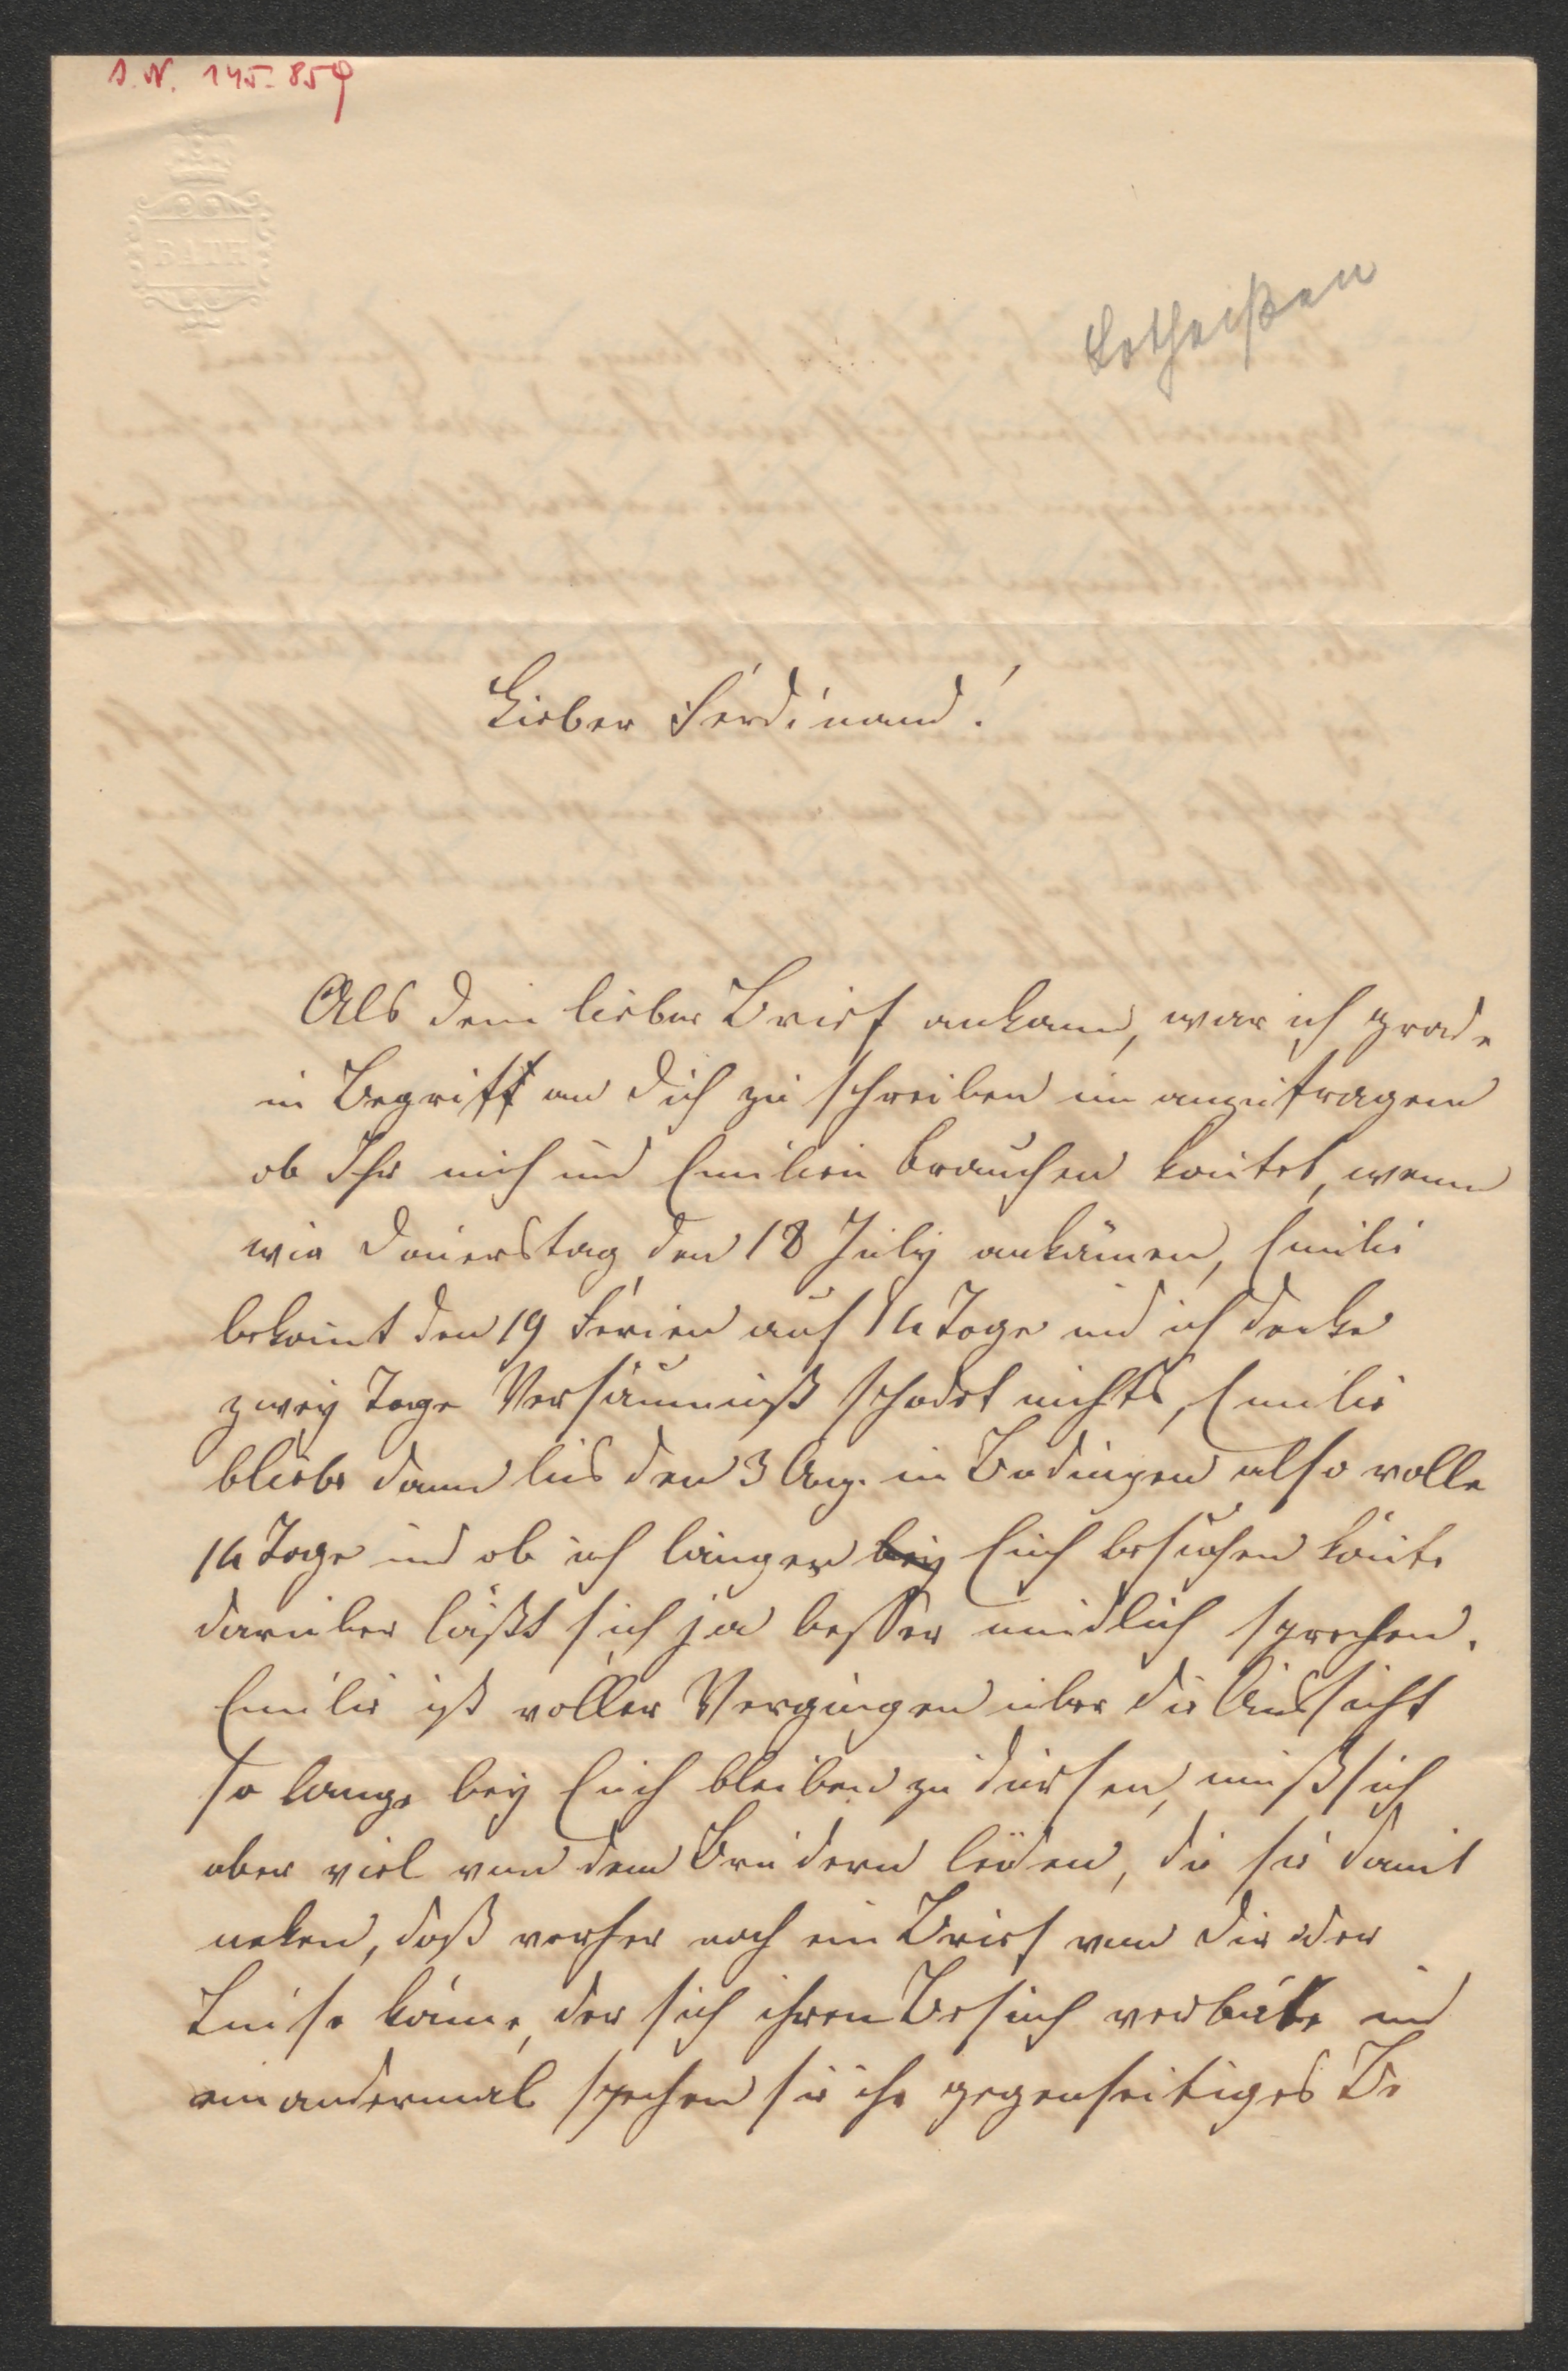 I. N. 145.859
BATH
Lotheißen
Lieber Ferdinand!
Als dein lieber Brief ankam, war ich grade
in Begriff an dich zu schreiben um anzufragen
ob Ihr mich und Emilien brauchen köntet, wenn
wir Donerstag den 18 July ankämen, Emilie
bekomt den 19 Ferien auf 14 Tage und ich denke
zwey Tage Versäumniß schadet nichts, Emilie
bliebe dann bis den 3 Aug. in Büdingen also volle
14 Tage und ob ich länger bey Euch besuchen könte
darüber läßt sich ja besser mündlich sprechen.
Emilie ist voller Vergnügen über die Aussicht
so lange bey Euch bleiben zu dürfen, muß sich
aber viel von den Brüdern leiden, die sie damit
neken, daß vorher noch ein Brief von dir oder
Luise käme, der sich ihren Besuch verbäte und
ein andermal sprechen sie ihr gegenseitiges Be